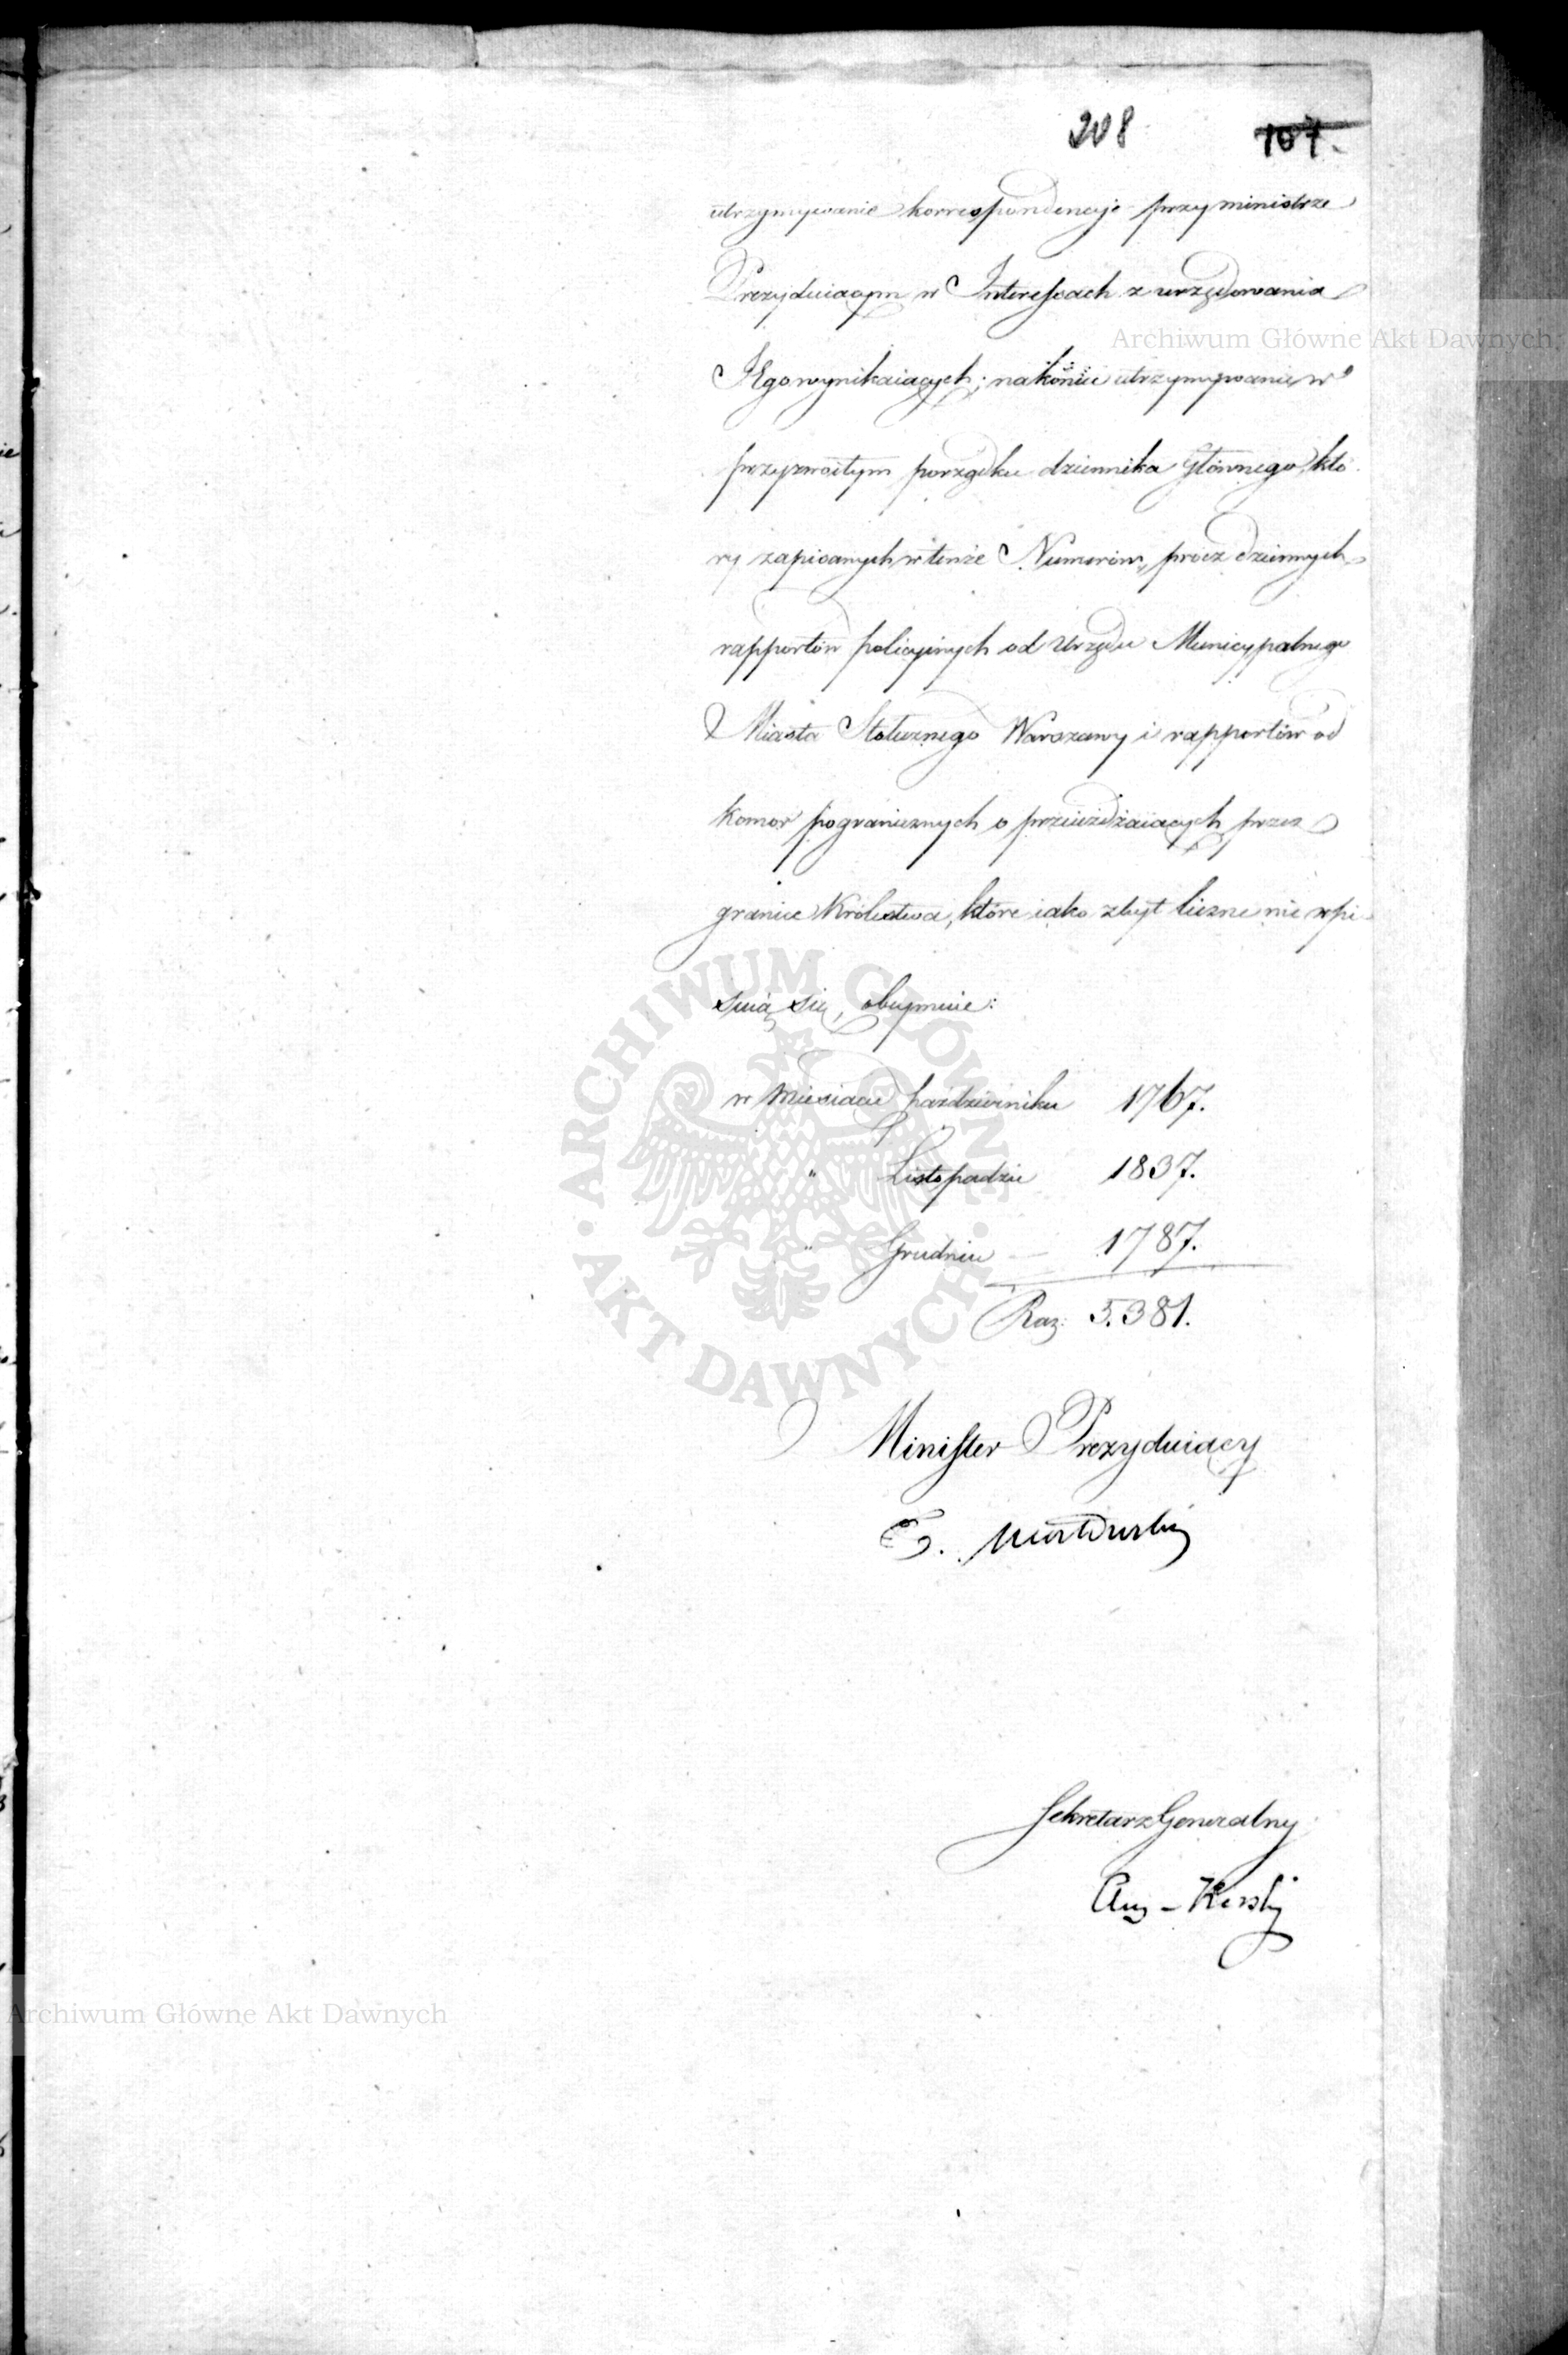 208 107.
utrzymywanie korrespondencyi przy ministrze
Prezyduiącym w Interessach z urzędowania
Jego wynikaiących; nakoniec utrzymywanie w
przyzwoitym porządku dziennika Głównego, któ
ry zapisanych w tenże Numerów, prócz dziennych
rapportów policyinych od Urzędu Municypalnego
Miasta Stołecznego Warszawy i rapportów od
Komor pogranicznych o przeieżdżaiących przez
granice Królestwa, które iako zbyt liczne nie wpi
suią się, obeymuie:
w Miesiącu październiku 1767.
" Listopadzie 1837.
" Grudniu — 1787.
Raz: 5.381.
Minister Prezyduiący
T. Mostowski
Sekretarz Generalny
Aug. Karski
Archiwum Główne Akt Dawnych
ARCHIWUM GŁÓWNE AKT DAWNYCH
Archiwum Główne Akt Dawnych